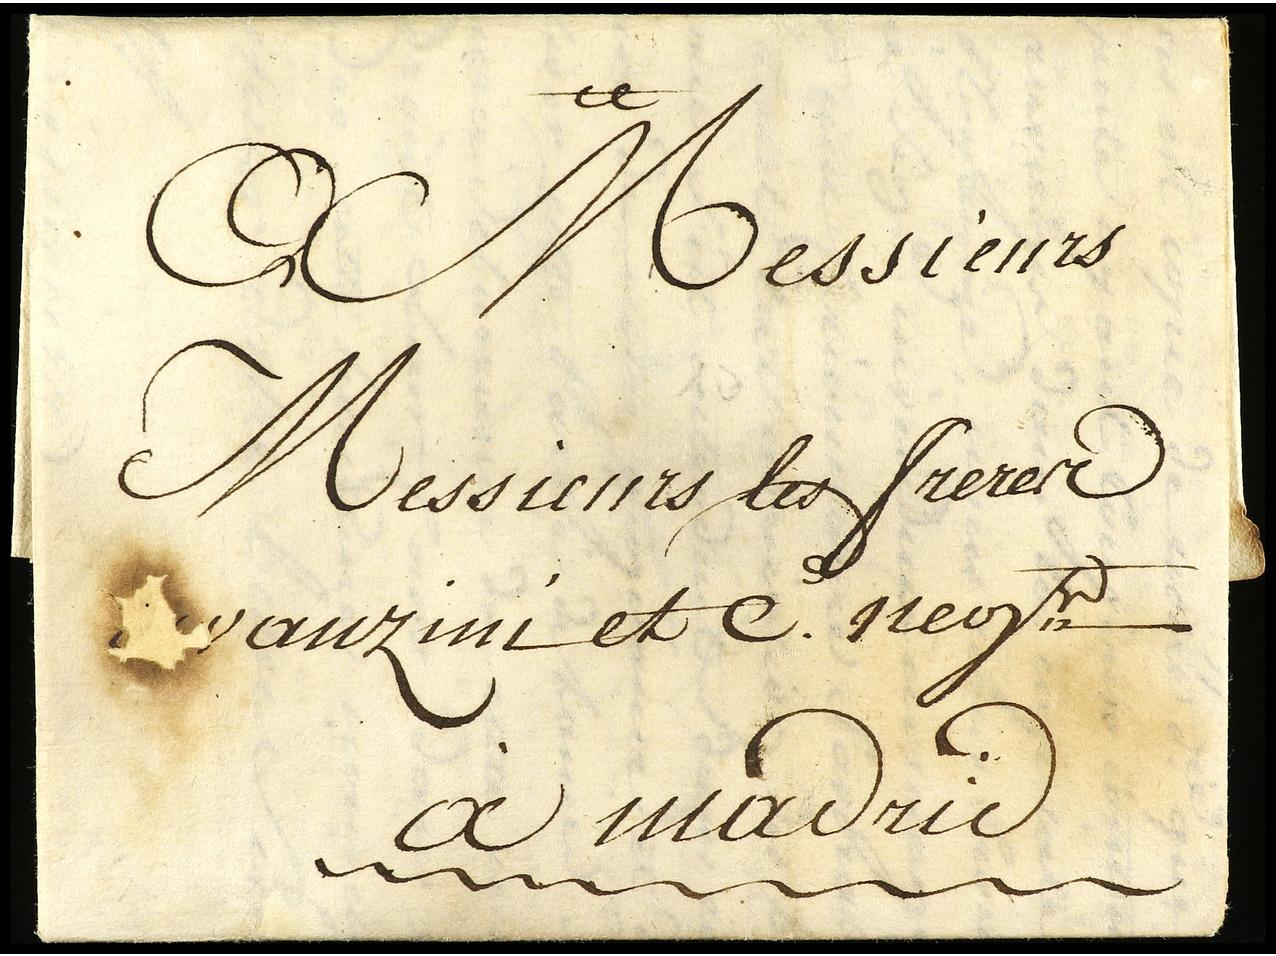 A Messieurs
Messieurs les freres
vanzini et C. negts
a madrid